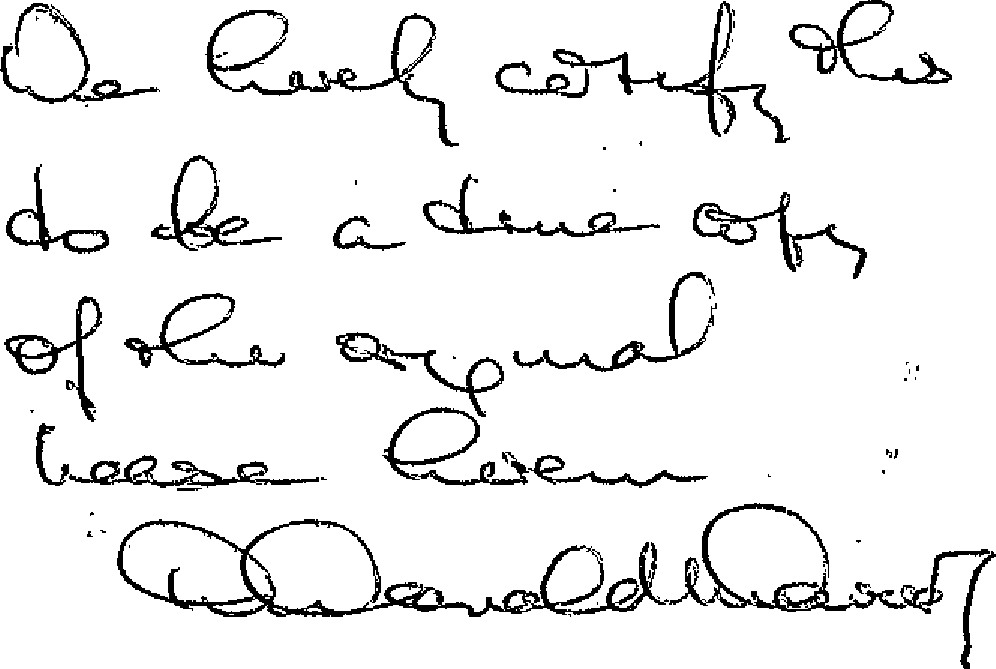 We hereby certify this
to be a true copy
of the original
lease herein